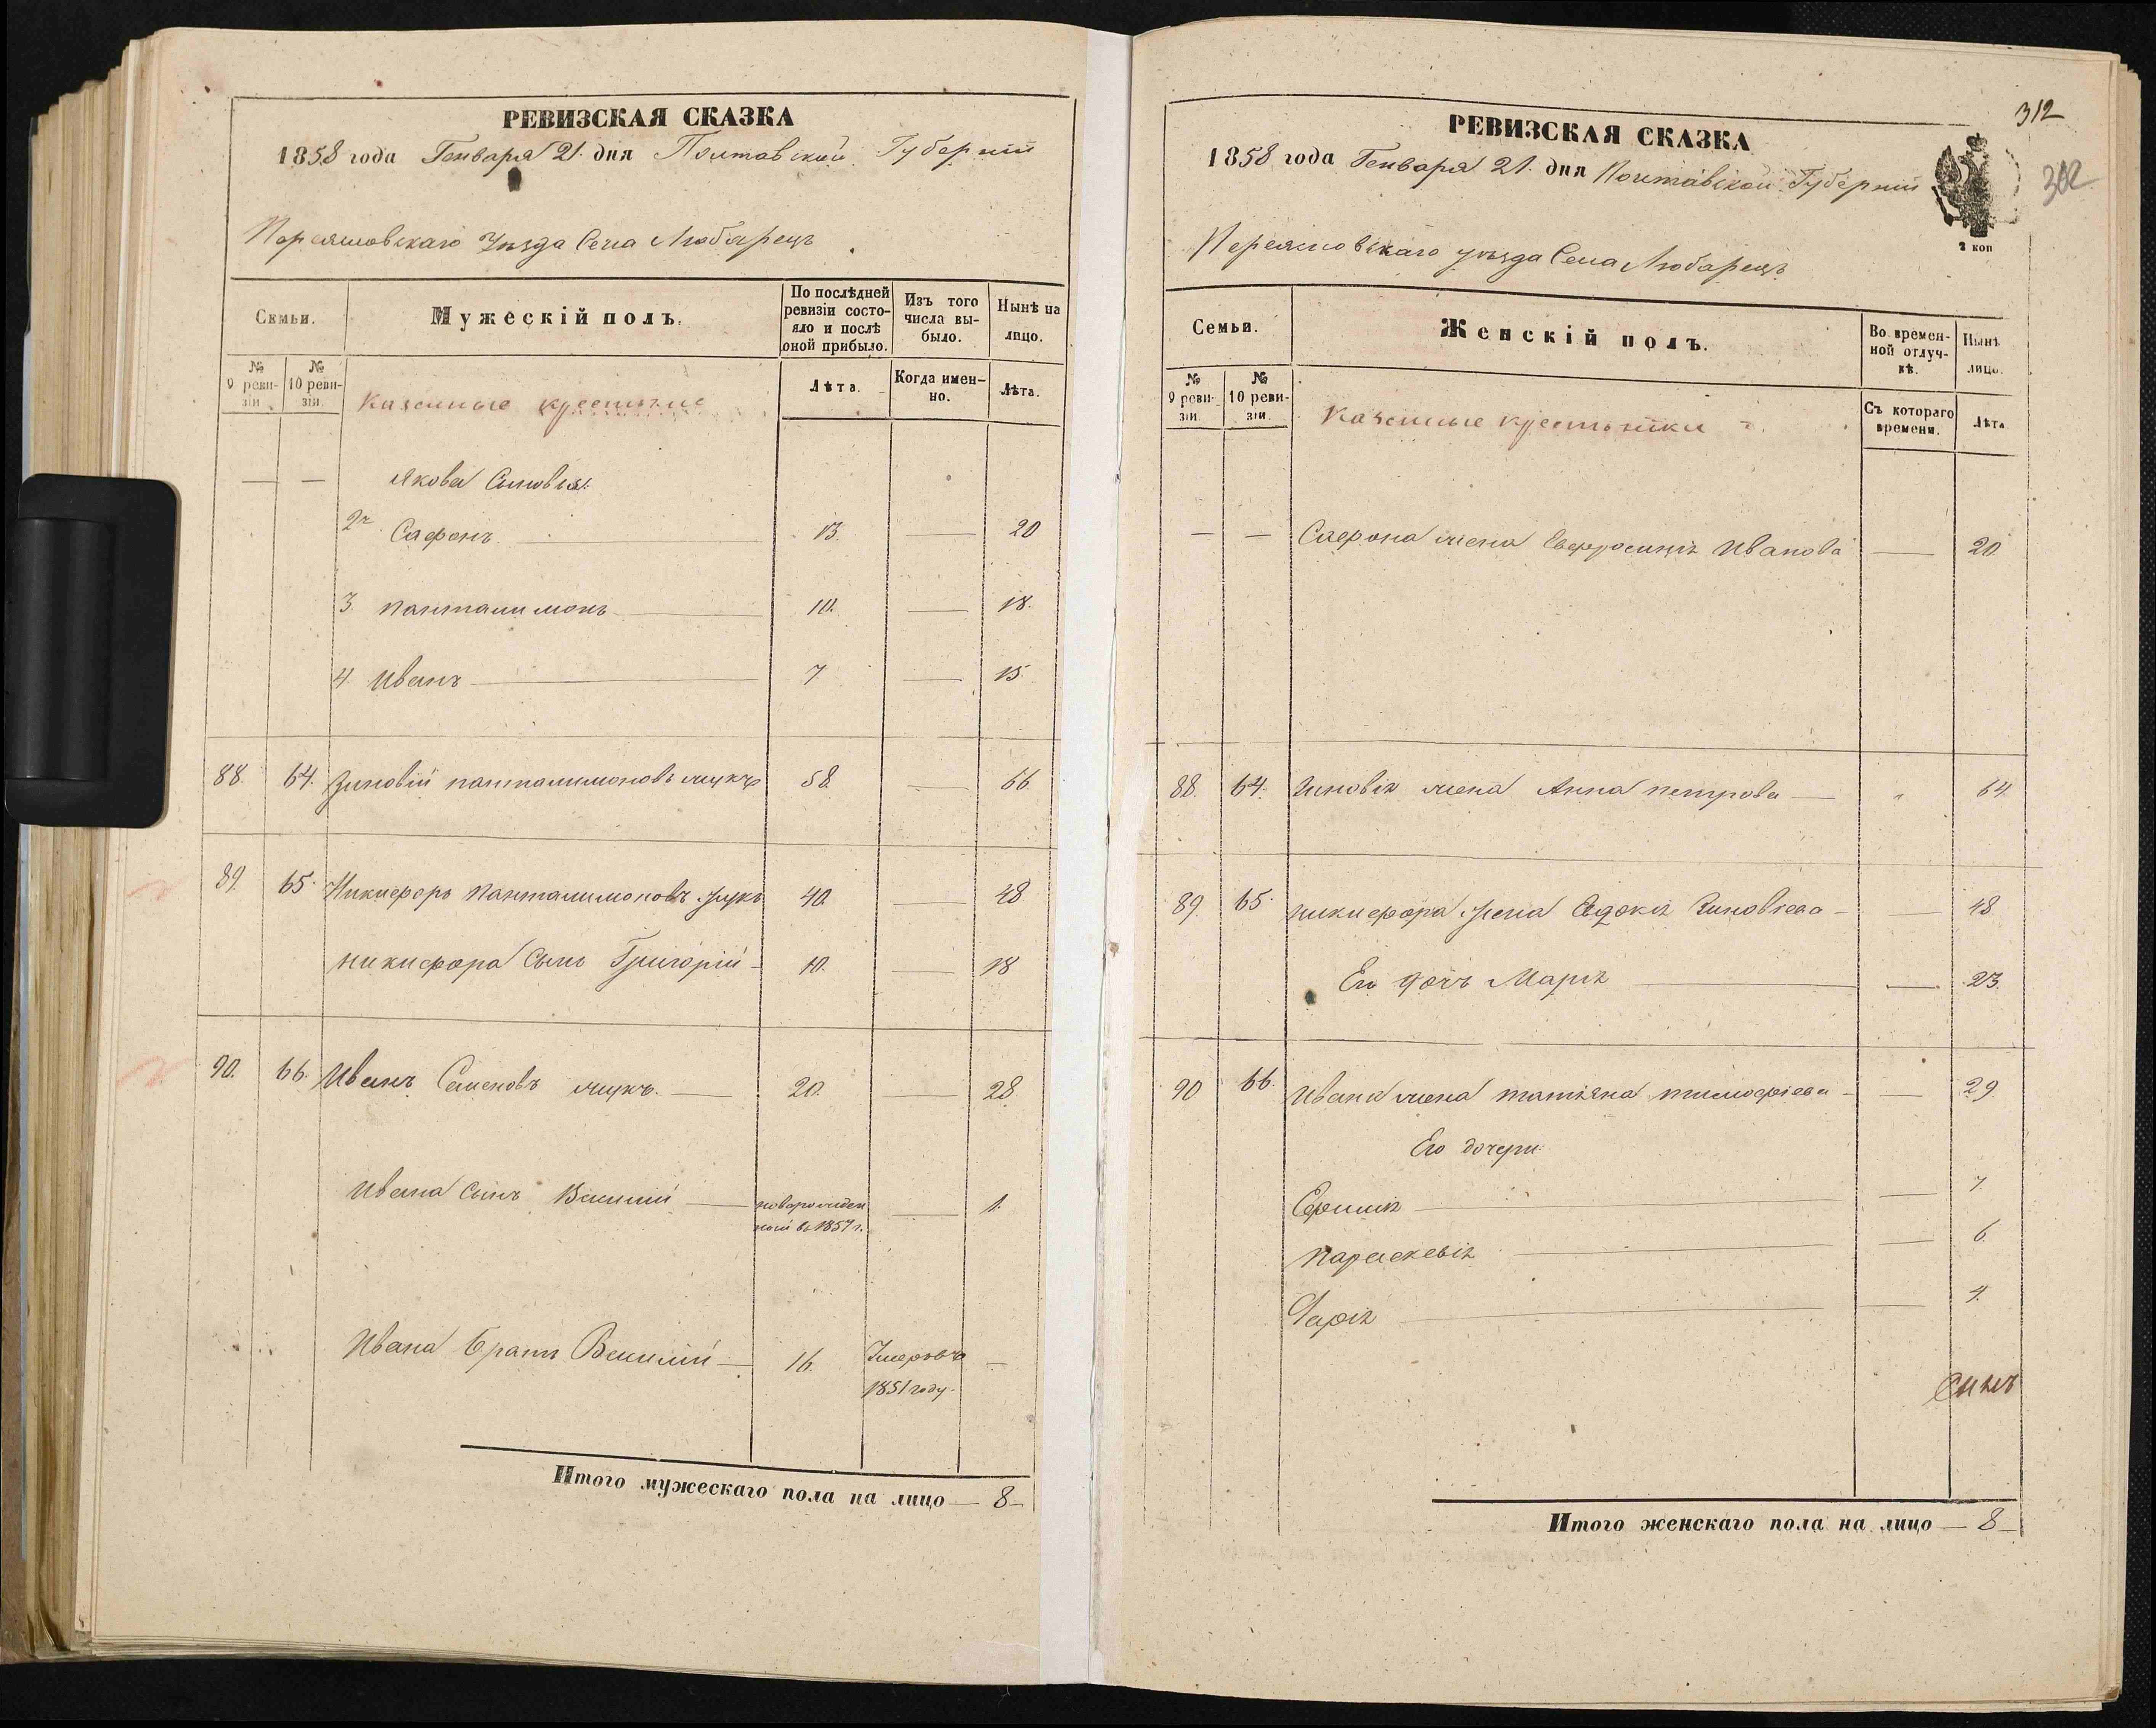 РЕВИЗСКАЯ СКАЗКА
1858 года Генваря 21. дня Полтавской Губерніи
Переяславскаго Уѣзда Села Любарецъ
Семьи.
Мужескій полъ.
По послѣдней ревизіи состояло и послѣ оной прибыло.
Изъ того числа выбыло.
Нынѣ на лицо.
№ 9 ревизіи
№ 10 ревизіи.
Казенные крестьяне
Лѣта.
Когда именно.
Лѣта.
— — Якова Сыновья:
2й Сафонъ — 13. — 20
3. Панталимонъ — 10. — 18.
4. Иванъ — 7 — 15
88. 64. Зиновій Панталимоновъ 58. — 66
89. 65. Никифоръ Панталимоновъ 40. — 48
Никифора Сынъ Григорій — 10. — 18
90. 66. Иванъ Семеновъ — 20. — 28
Ивана Сынъ Василій — новорожденной въ 1857 г. — 1.
Ивана братъ Василий — 16. Умеръ въ 1851 году. —
Итого мужескаго пола на лицо — 8 —
312
302
РЕВИЗСКАЯ СКАЗКА
1858 года Генваря 21. дня Полтавской Губерніи
2 коп
Переяславскаго уѣзда Села Любарецъ
Семьи.
Женскій полъ.
Во временной отлучкѣ.
Нынѣ лицо.
№ 9 ревизіи
№ 10 ревизіи.
Казенные крестьянки
Съ котораго времени.
Лѣта
— — Сафона жена Евфросинія Иванова — 20
88. 64. Зиновія жена Анна Петрова — " 64.
89. 65. Никифора жена Евдокія Зиновіева — — 48
Его дочь Марія — — 23.
90 66. Ивана жена Татіяна Тимофіева — — 29.
Его дочери
Ефимія — — 7.
Параскевія — — 6.
Дарія — — 4.
Итого женскаго пола на лицо — 8 —